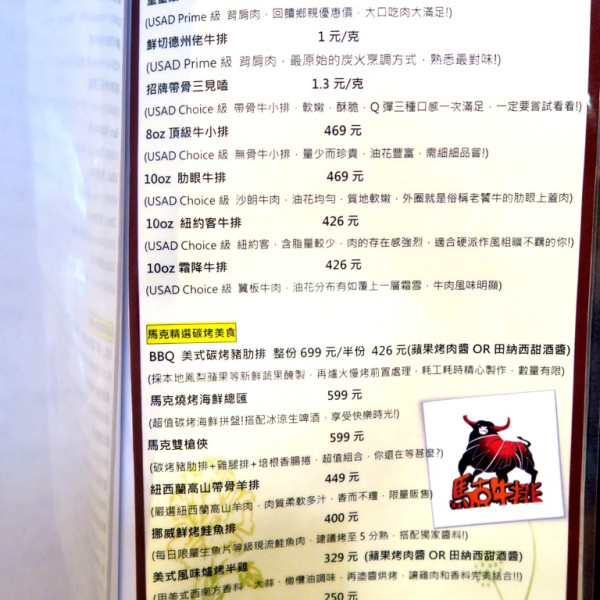 (USAD Prime 級 背肩肉，回饋鄉親優惠價，大口吃肉大滿足!)
鮮切德州佬牛排 1 元/克
(USAD Prime 級 背肩肉，最原始的炭火烹調方式，熟悉最對味!)
招牌帶骨三見嗑 1.3 元/克
(USAD Choice 級 帶骨牛小排，軟嫩，酥脆，Q 彈三種口感一次滿足，一定要嘗試看看!)
8oz 頂級牛小排 469 元
(USAD Choice 級 無骨牛小排，量少而珍貴，油花豐富，需細細品嘗!)
10oz 肋眼牛排 469 元
(USAD Choice 級 沙朗牛肉，油花均勻，質地軟嫩，外圈就是俗稱老饕牛的肋眼上蓋肉)
10oz 紐約客牛排 426 元
(USAD Choice 級 紐約客，含脂量較少，肉的存在感強烈，適合硬派作風粗曠不羈的你!)
10oz 霜降牛排 426 元
(USAD Choice 級 翼板牛肉，油花分布有如覆上一層霜雪，牛肉風味明顯)
馬克精選碳烤美食
BBQ 美式碳烤豬肋排 整份 699 元/半份 426 元(蘋果烤肉醬 OR 田納西甜酒醬)
(採本地鳳梨蘋果等新鮮蔬果醃製，再爐火慢烤前置處理，耗工耗時精心製作，數量有限)
馬克燒烤海鮮總匯 599 元
(超值碳烤海鮮拼盤!搭配冰涼生啤酒，享受快樂時光!)
馬克雙槍俠 599 元
(碳烤豬肋排+雞腿排+培根香腸捲，超值組合，你還在等甚麼?)
紐西蘭高山帶骨羊排 449 元
(嚴選紐西蘭高山羊肉，肉質柔軟多汁，香而不羶，限量販售)
挪威鮮烤鮭魚排 400 元
(每日限量生魚片等級現流鮭魚肉，建議烤至 5 分熟，搭配獨家醬料!)
美式風味爐烤半雞 329 元 (蘋果烤肉醬 OR 田納西甜酒醬)
(用美式西南方香料，大蒜，橄欖油調味，再塗醬烘烤，讓雞肉和香料完美結合!!)
250 元
馬克牛排